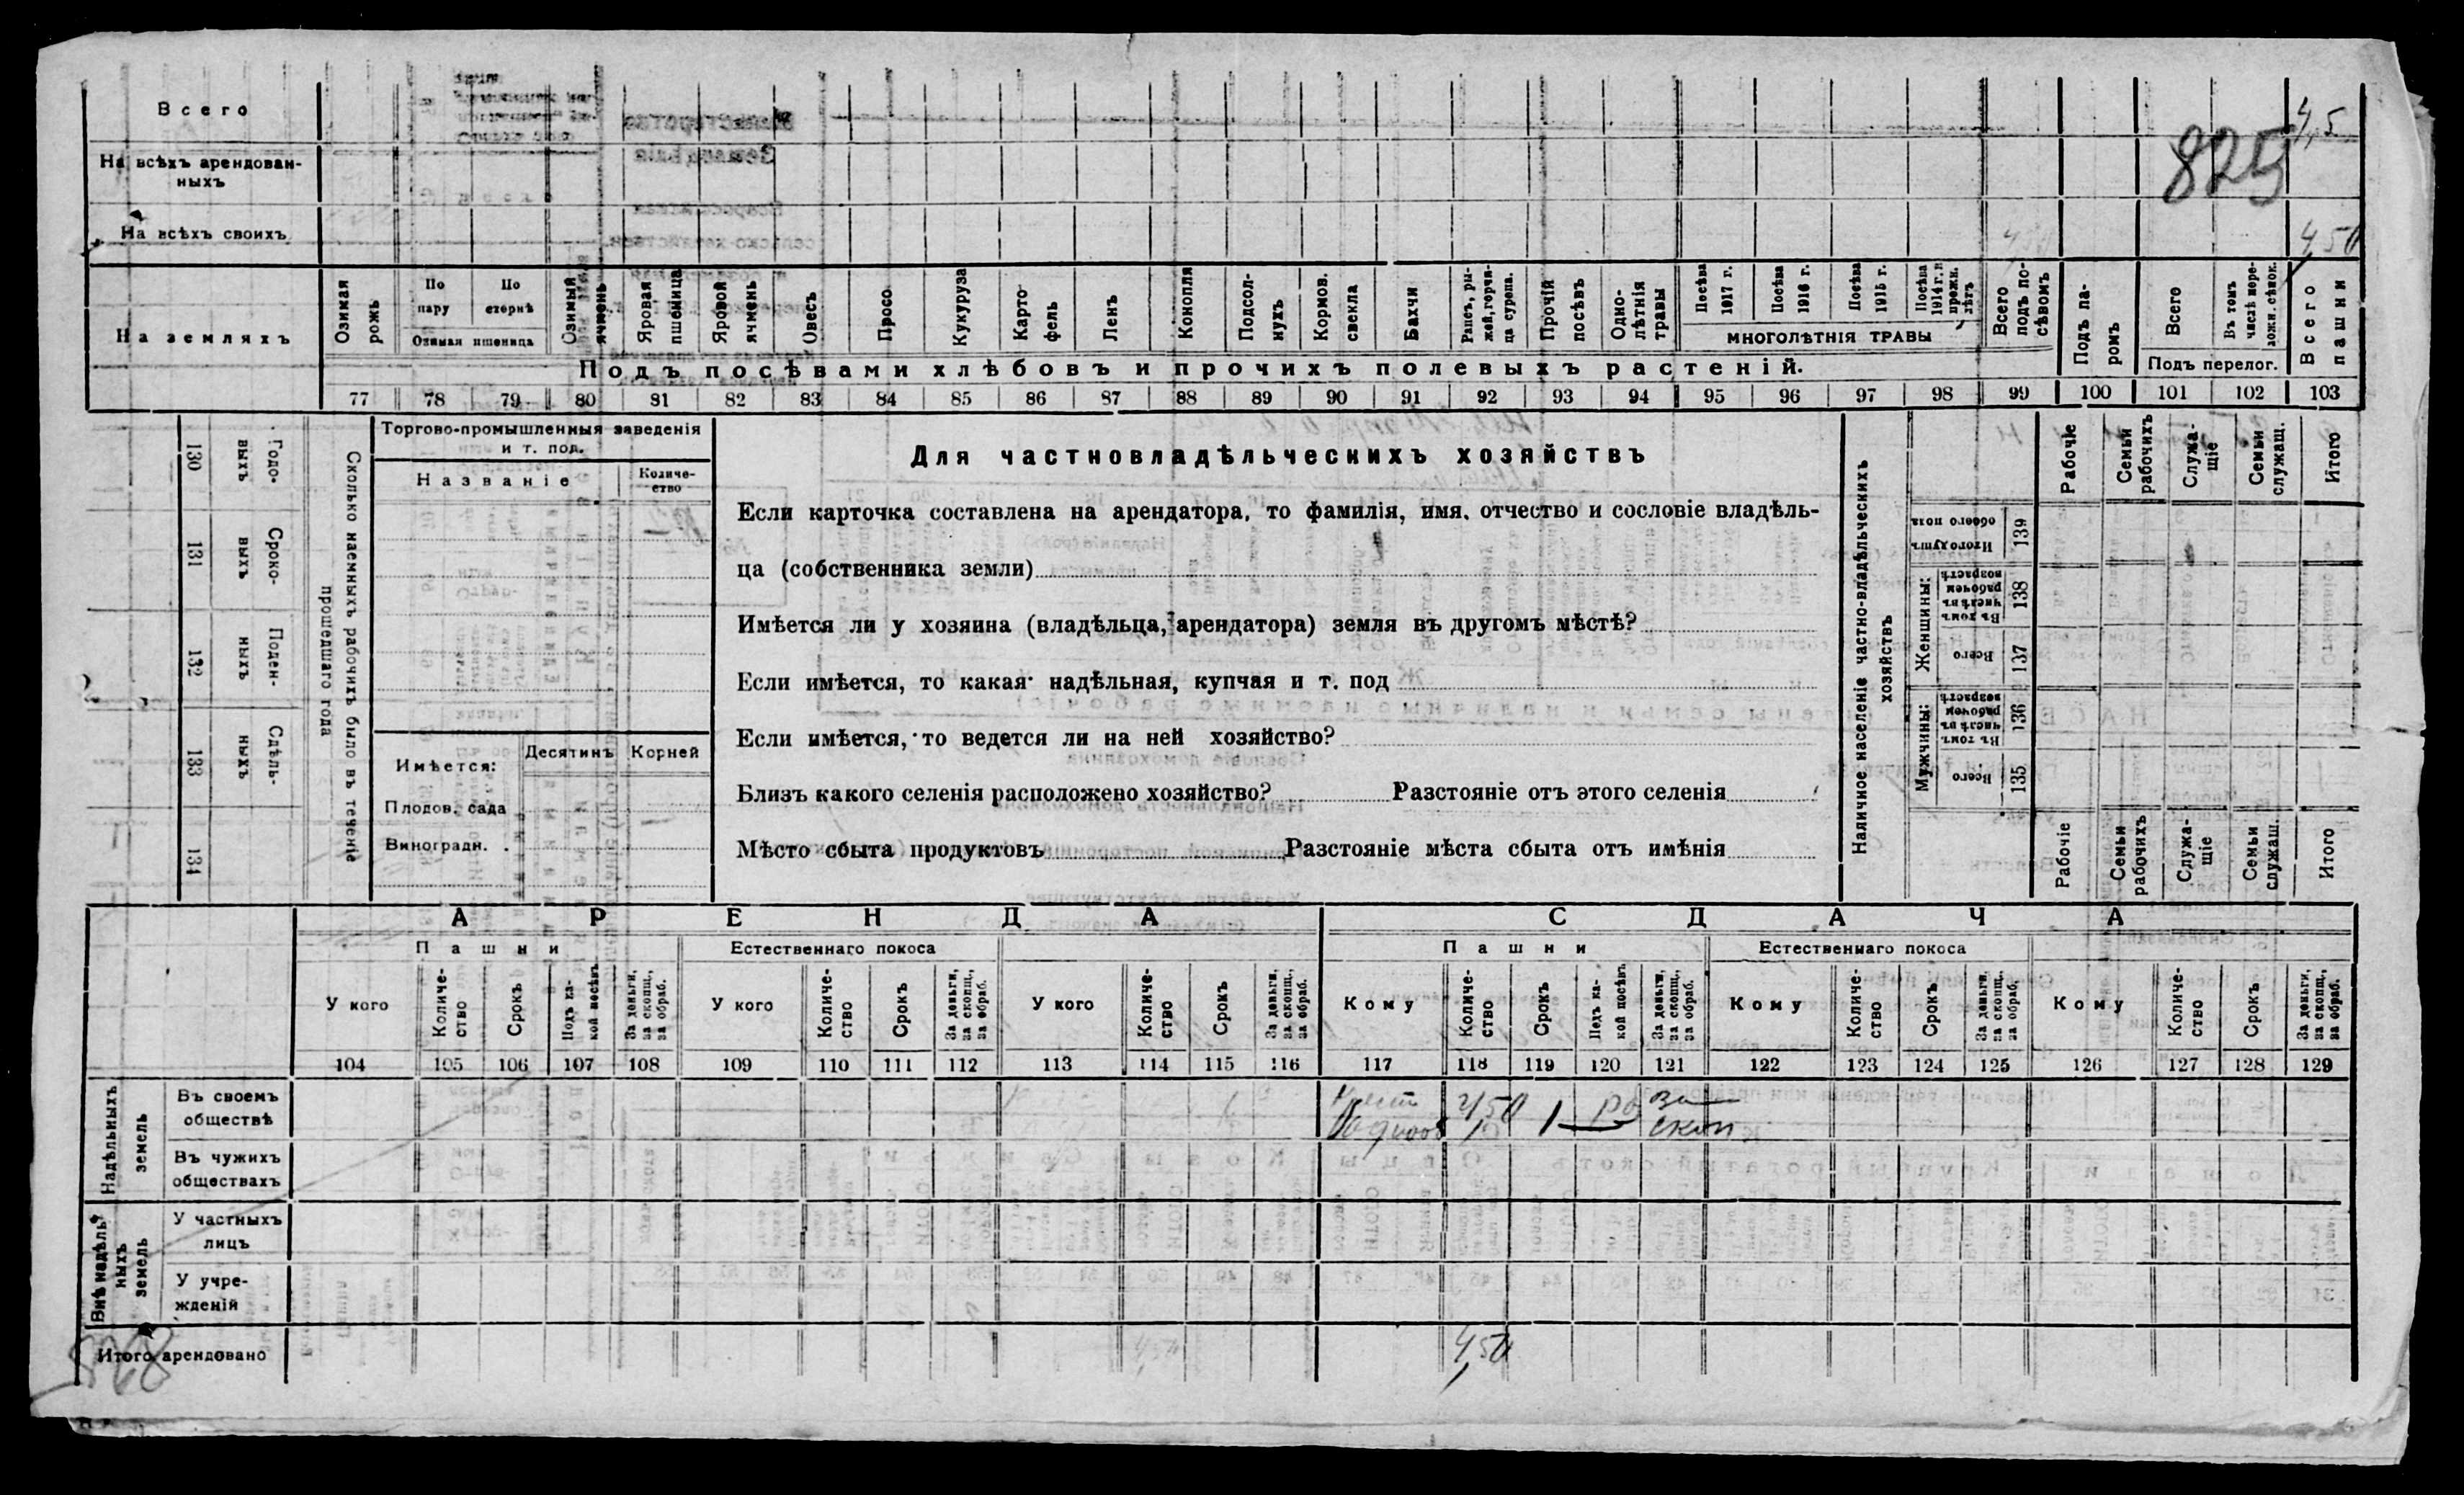 Всего
4,5
825
На всѣхъ арендован-
ныхъ
На всѣхъ своихъ
4,50
На земляхъ
Озимая рожь
По пару
По стернѣ
Озимая пшеница
Озимый ячмень
Яровая пшеница
Яровой ячмень
Овесъ
Просо
Кукуруза
Карто
фель
Ленъ
Конопля
Подсол-
нухъ
Кормов. свекла
Бахчи
Рапсъ, ры-
жей, горчи-
ца сурепа.
Прочій посѣвъ
Одно-
лѣтнія травы
Посѣва 1917 г.
Посѣва 1916 г.
Посѣва 1915 г.
Посѣва 1914 г. и прежн. лѣтъ
МНОГОЛѢТНІЯ ТРАВЫ
Всего подъ по-
сѣвомъ
Подъ па-
ромъ
Всего
Въ томъ числѣ пере-
ложн. сѣнок.
Подъ перелог.
Всего пашни
Подъ посѣвами хлѣбовъ и прочихъ полевыхъ растеній.
77 78 79 80 81 82 83 84 85 86 87 88 89 90 91 92 93 94 95 96 97 98 99 100 101 102 103
Сколько наемныхъ рабочихъ было въ теченіе
прошедшаго года
Годо-
выхъ
130
Сроко-
выхъ
131
Поден-
ныхъ
132
Сдѣль-
ныхъ
133
134
Торгово-промышленныя заведенія
и т. под.
Названіе
Количе-
ство
Имѣется:
Десятинъ
Корней
Плодов. сада
Виноградн.
Для частновладѣльческихъ хозяйствъ
Если карточка составлена на арендатора, то фамилія, имя, отчество и сословіе владѣль-
ца (собственника земли)
Имѣется ли у хозяина (владѣльца, арендатора) земля въ другомъ мѣстѣ?
Если имѣется, то какая надѣльная, купчая и т. под
Если имѣется, то ведется ли на ней хозяйство?
Близъ какого селенія расположено хозяйство? Разстояніе отъ этого селенія
Мѣсто сбыта продуктовъ Разстояніе мѣста сбыта отъ имѣнія
Наличное населеніе частно-владѣльческихъ
хозяйствъ
Рабочіе
Семьи рабочихъ
Служа-
щіе
Семьи служащ.
Итого
Итого душъ обоего пола
139
Женщины:
Въ томъ числѣ въ рабочемъ возрастѣ
138
Всего
137
Мужчины:
Въ томъ числѣ въ рабочемъ возрастѣ
136
Всего
135
Рабочіе
Семьи рабочихъ
Служа-
щіе
Семьи служащ.
Итого
АРЕНДА
СДАЧА
Пашни
Естественнаго покоса
Пашни
Естественнаго покоса
У кого
Количе-
ство
Срокъ
Подъ ка-
кой посѣвъ
За деньги, за скопщ., за обраб.
У кого
Количе-
ство
Срокъ
За деньги, за скопщ., за обраб.
У кого
Количе-
ство
Срокъ
За деньги, за скопщ., за обраб.
Кому
Количе-
ство
Срокъ
Подъ ка-
кой посѣвъ
За деньги, за скопщ., за обраб.
Кому
Количе-
ство
Срокъ
За деньги, за скопщ., за обраб.
Кому
Количе-
ство
Срокъ
За деньги, за скопщ., за обраб.
104 105 106 107 108 109 110 111 112 113 114 115 116 117 118 119 120 121 122 123 124 125 126 127 128 129
Надѣльныхъ
земель
Въ своемъ
обществѣ
4,50 1 за
скоп
Въ чужихъ
обществахъ
Внѣ надѣль-
ныхъ
земель
У частныхъ
лицъ
У учре-
жденій
Итого арендовано
4,50